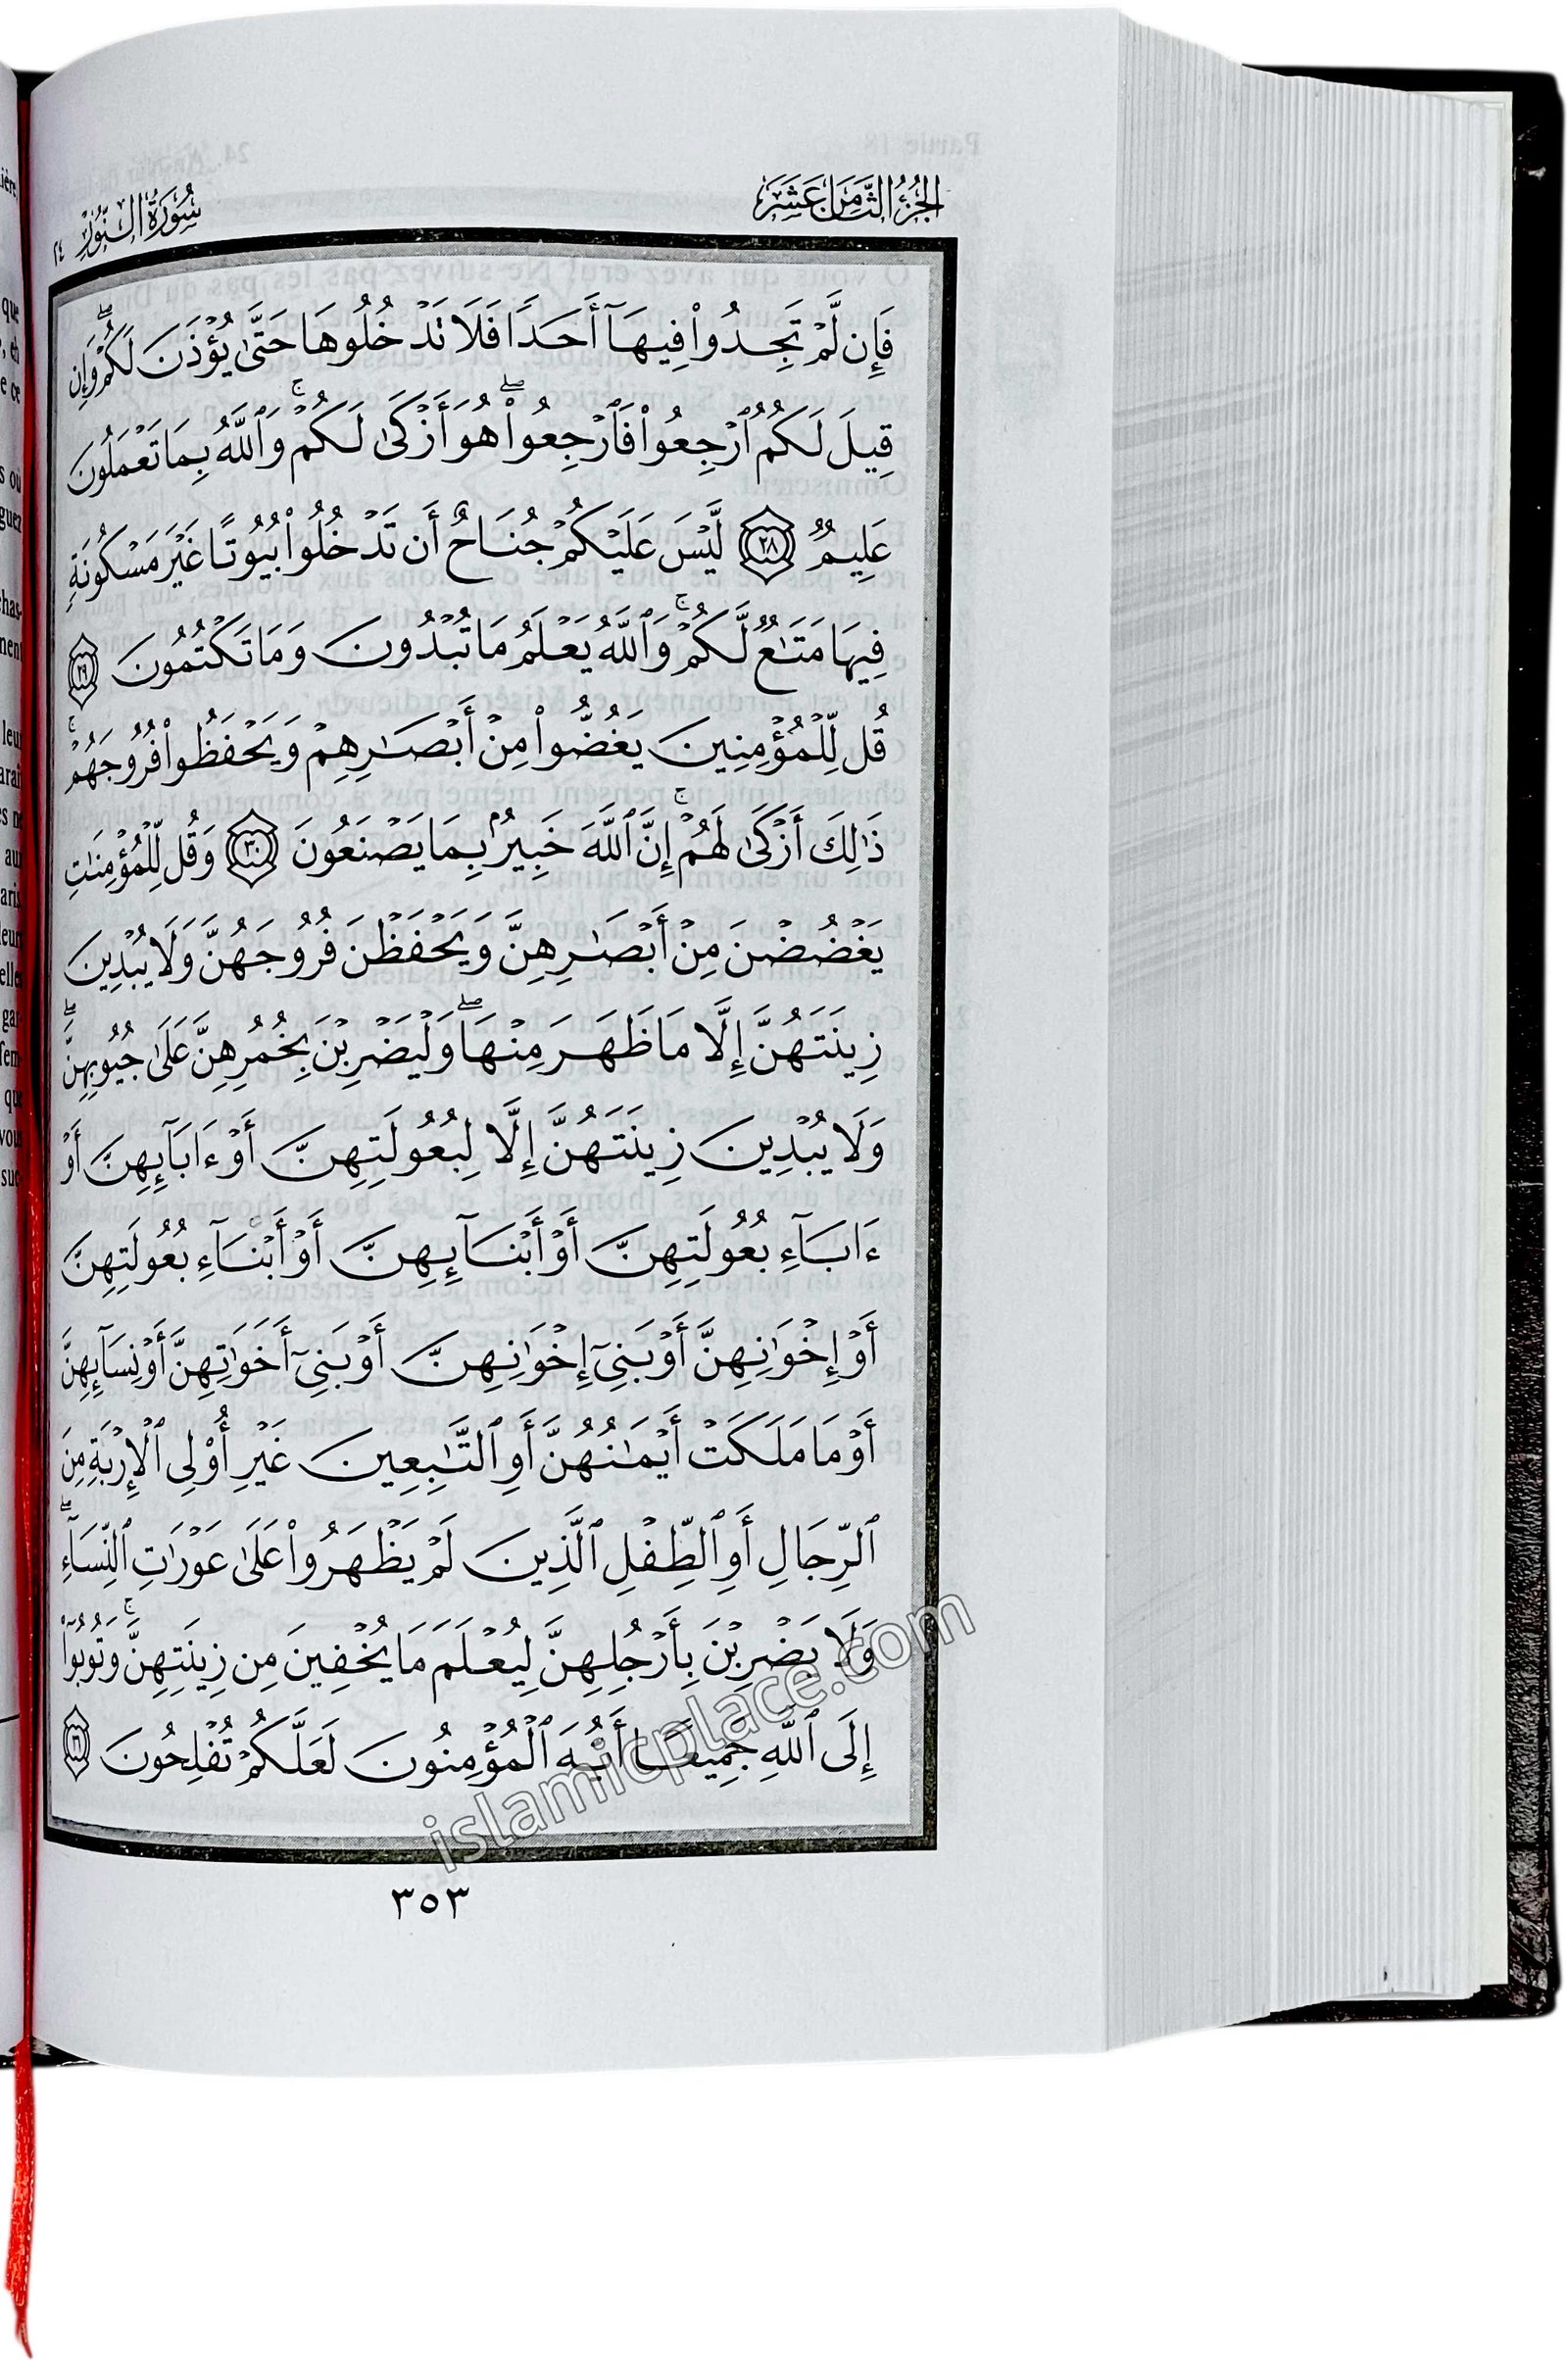 الجزء الثامن عشر
سورة النور ٢٤
فَإِن لَّمْ تَجِدُوا۟ فِيهَآ أَحَدًا فَلَا تَدْخُلُوهَا حَتَّىٰ يُؤْذَنَ لَكُمْ ۖ وَإِن
قِيلَ لَكُمُ ٱرْجِعُوا۟ فَٱرْجِعُوا۟ ۖ هُوَ أَزْكَىٰ لَكُمْ ۚ وَٱللَّهُ بِمَا تَعْمَلُونَ
عَلِيمٌ ٢٨ لَّيْسَ عَلَيْكُمْ جُنَاحٌ أَن تَدْخُلُوا۟ بُيُوتًا غَيْرَ مَسْكُونَةٍ
فِيهَا مَتَـٰعٌ لَّكُمْ ۚ وَٱللَّهُ يَعْلَمُ مَا تُبْدُونَ وَمَا تَكْتُمُونَ ٢٩
قُل لِّلْمُؤْمِنِينَ يَغُضُّوا۟ مِنْ أَبْصَـٰرِهِمْ وَيَحْفَظُوا۟ فُرُوجَهُمْ ۚ
ذَٰلِكَ أَزْكَىٰ لَهُمْ ۗ إِنَّ ٱللَّهَ خَبِيرٌۢ بِمَا يَصْنَعُونَ ٣٠ وَقُل لِّلْمُؤْمِنَـٰتِ
يَغْضُضْنَ مِنْ أَبْصَـٰرِهِنَّ وَيَحْفَظْنَ فُرُوجَهُنَّ وَلَا يُبْدِينَ
زِينَتَهُنَّ إِلَّا مَا ظَهَرَ مِنْهَا ۖ وَلْيَضْرِبْنَ بِخُمُرِهِنَّ عَلَىٰ جُيُوبِهِنَّ ۖ
وَلَا يُبْدِينَ زِينَتَهُنَّ إِلَّا لِبُعُولَتِهِنَّ أَوْ ءَابَآئِهِنَّ أَوْ
ءَابَآءِ بُعُولَتِهِنَّ أَوْ أَبْنَآئِهِنَّ أَوْ أَبْنَآءِ بُعُولَتِهِنَّ
أَوْ إِخْوَٰنِهِنَّ أَوْ بَنِىٓ إِخْوَٰنِهِنَّ أَوْ بَنِىٓ أَخَوَٰتِهِنَّ أَوْ نِسَآئِهِنَّ
أَوْ مَا مَلَكَتْ أَيْمَـٰنُهُنَّ أَوِ ٱلتَّـٰبِعِينَ غَيْرِ أُو۟لِى ٱلْإِرْبَةِ مِنَ
ٱلرِّجَالِ أَوِ ٱلطِّفْلِ ٱلَّذِينَ لَمْ يَظْهَرُوا۟ عَلَىٰ عَوْرَٰتِ ٱلنِّسَآءِ ۖ
وَلَا يَضْرِبْنَ بِأَرْجُلِهِنَّ لِيُعْلَمَ مَا يُخْفِينَ مِن زِينَتِهِنَّ ۚ وَتُوبُوٓا۟
إِلَى ٱللَّهِ جَمِيعًا أَيُّهَ ٱلْمُؤْمِنُونَ لَعَلَّكُمْ تُفْلِحُونَ ٣١
٣٥٣
islamicplace.com